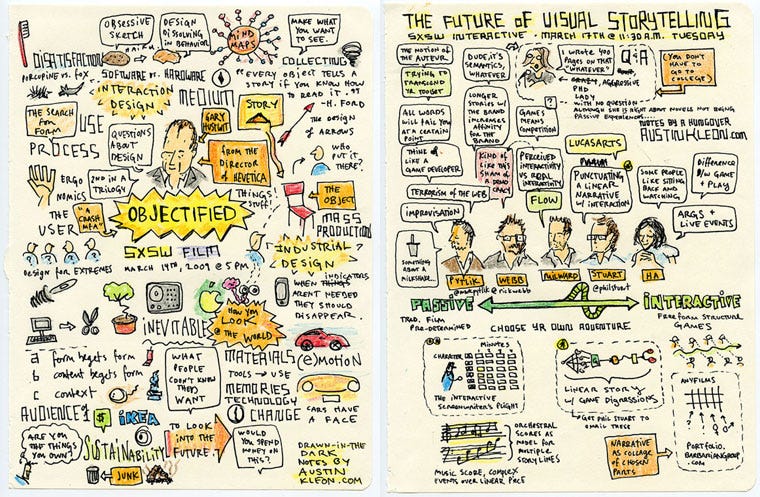 OBSESSIVE
SKETCH
DESIGN
DISSOLVING
IN BEHAVIOR
MIND
MAPS
MAKE WHAT
YOU WANT
TO SEE.
DISATISFACTION
COLLECTING
PORCUPINE vs. FOX
SOFTWARE vs. HARDWARE
INTERACTION
DESIGN
MEDIUM
"EVERY OBJECT TELLS A
STORY IF YOU KNOW HOW
TO READ IT."
- H. FORD
THE SEARCH
FOR
FORM
USE
PROCESS
QUESTIONS
ABOUT
DESIGN
GARY
HUSTWIT
STORY
THE DESIGN
OF
ARROWS
FROM THE
DIRECTOR
OF
HELVETICA
WHO
PUT IT
THERE?
ERGO
NOMICS
2ND IN A
TRILOGY
THINGS!
STUFF!
THE
OBJECT
THE
USER
"A
CRASH
MFA"
OBJECTIFIED
MASS
PRODUCTION
SXSW FILM
MARCH 14TH, 2009 @ 5 PM
INDUSTRIAL
DESIGN
DESIGN FOR EXTREMES
INDICATORS
WHEN THINGS
AREN'T NEEDED
THEY SHOULD
DISAPPEAR.
HOW YOU
LOOK
@ THE WORLD
INEVITABLE
a form begets form
b content begets form
c context
WHAT
PEOPLE
DON'T KNOW
THEY
WANT
MATERIALS
(e)MOTION
TOOLS → USE
MEMORIES
TECHNOLOGY
CHANGE
CARS HAVE
A FACE
AUDIENCE?
$
IKEA
ARE YOU
THE THINGS
YOU OWN?
SUSTAINABILITY
TO LOOK
INTO THE
FUTURE.
WOULD YOU
SPEND
MONEY ON
THIS?
JUNK
DRAWN-IN-THE
DARK
NOTES BY
AUSTIN
KLEON.COM
THE FUTURE OF VISUAL STORYTELLING
SXSW INTERACTIVE • MARCH 17TH @ 11:30 A.M. TUESDAY
THE NOTION OF
THE AUTEUR
DUDE, IT'S
SEMANTICS,
WHATEVER
I WROTE 400
PAGES ON THAT
"WHATEVER"
Q+A
(YOU DON'T
HAVE TO
GO TO
COLLEGE)
TRYING TO
TRANSCEND
YR TOOLSET
AGGRESSIVE
PHD
LADY
WITH NO QUESTION —
ALTHOUGH SHE IS RIGHT ABOUT NOVELS NOT BEING
PASSIVE EXPERIENCES...
LONGER
STORIES W/
THE BRAND
INCREASES
AFFINITY FOR
THE BRAND
?
GAMES
MEANS
COMPETITION
NOTES BY A HUNGOVER
AUSTINKLEON.com
ALL WORDS
WILL FAIL YOU
AT A CERTAIN
POINT
LUCASARTS
THINK OF
LIKE A
GAME DEVELOPER
KIND OF
LIKE THIS
SHAM OF
A DEMO
PERCEIVED
INTERACTIVITY
VS REAL
INTERACTIVITY
PUNCTUATING
A LINEAR
NARRATIVE
W/ INTERACTION
SOME PEOPLE
LIKE SITTING
BACK AND
WATCHING
DIFFERENCE
B/W GAME
+ PLAY
TERRORISM OF THE WEB
FLOW
IMPROVISATION
ARGS +
LIVE EVENTS
SOMETHING
ABOUT A
MILKSHAKE...
PYTLIK
WEBB
MILWARD
STUART
HA
@markpytlik
@rickwebb
@philstuart
PASSIVE
INTERACTIVE
TRAD. FILM
PRE-DETERMINED
CHOOSE YR OWN ADVENTURE
FREE FORM STRUCTURE
GAMES
MINUTES
CHARACTER
THE INTERACTIVE
SCREENWRITER'S PLIGHT
LINEAR STORY
W/ GAME DIGRESSIONS
GET PHIL STUART TO
EMAIL THESE
ANYFILMS
ORCHESTRAL
SCORES AS
MODEL FOR
MULTIPLE
STORY LINES
MUSIC SCORE, COMPLEX
EVENTS OVER LINEAR PIECE
NARRATIVE
AS COLLAGE
OF CHOSEN
PARTS
PORTFOLIO.
BARBARIANGROUP
.COM